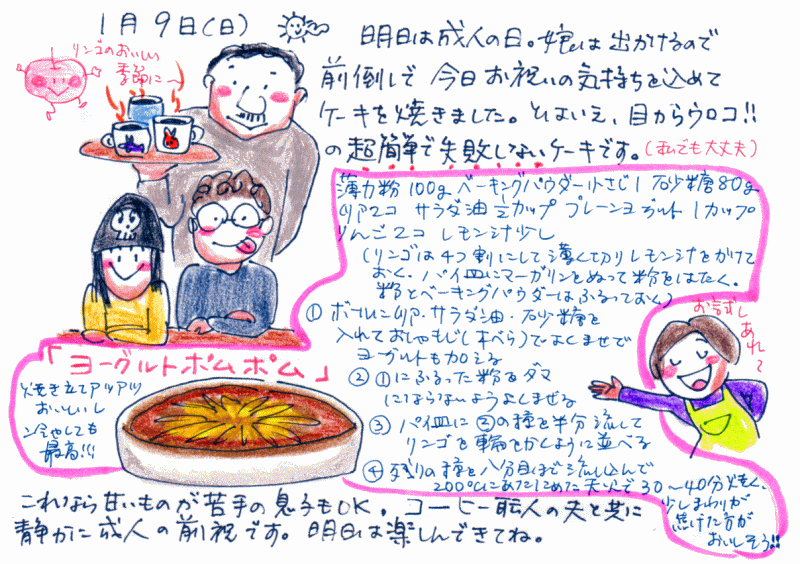 1月9日(日)
リンゴのおいしい
季節に〜
明日は成人の日。娘は出かけるので
前倒しで 今日お祝いの気持ちを込めて
ケーキを焼きました。とはいえ、目からウロコ!!
の超簡単で失敗しないケーキです。(まんでも大丈夫)
薄力粉 100g ベーキングパウダー小さじ1 砂糖80g
卵2コ サラダ油½カップ プレーンヨーグルト1カップ
りんご2コ レモン汁少し
(リンゴは4つ割にして薄く切りレモン汁をかけて
おく。パイ皿にマーガリンをぬって粉をはたく。
粉とベーキングパウダーはふるっておく)
① ボールに卵・サラダ油・砂糖を
入れておしゃもじ(木べら)でよくまぜて
ヨーグルトも加える
② ①にふるった粉をダマ
にならないようよくまぜる
③ パイ皿に②の種を半分流して
リンゴを輪をかくように並べる
④ 残りの種を八分目ほど流し込んで
200℃にあたためた天火で30〜40分焼く。
少しまわりが
焦げた方が
おいしそう!!
お試しあれ〜
「ヨーグルトポムポム」
焼き立てアツアツ
おいしいし
冷やしても
最高!!!
これなら甘いものが苦手の息子もOK。コーヒー職人の夫と共に
静かに成人の前祝です。明日は楽しんできてね。